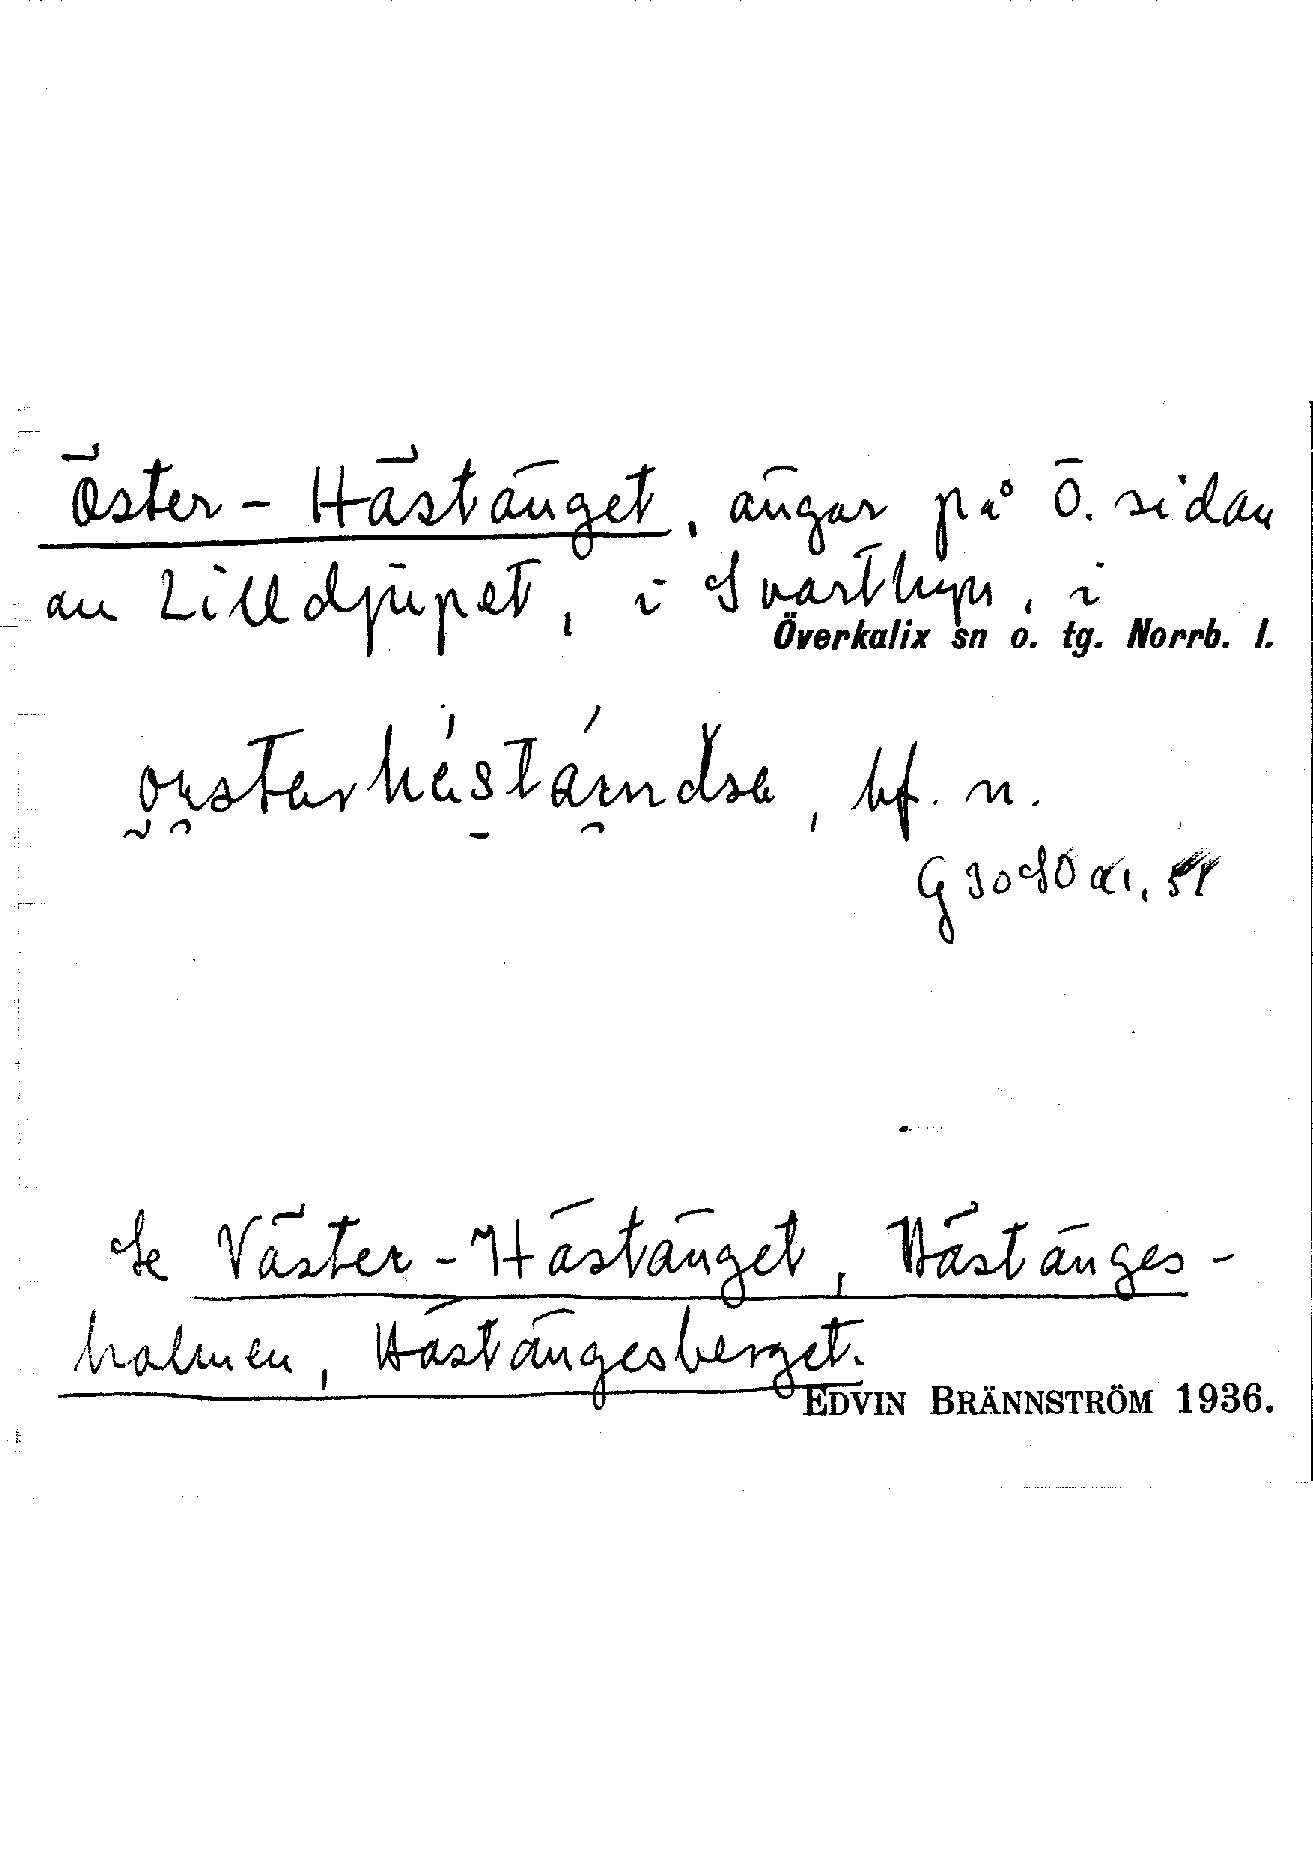 Öster-Hästänget, ängar på Ö. sidan
av Lilldjupet, i Svartbyn, i
Överkalix sn o. tg. Norrb. l.
bf. n.
Se Väster-Hästänget, Hästänges-
holmen, Hästängesberget.
EDVIN BRÄNNSTRÖM 1936.